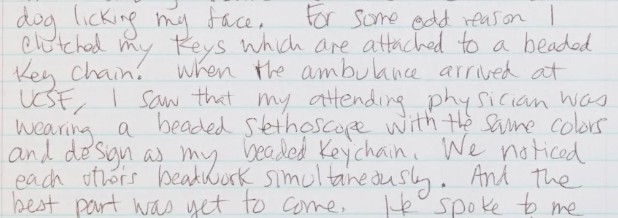 dog licking my face. For some odd reason I
clutched my keys which are attached to a beaded
key chain. When the ambulance arrived at
UCSF, I saw that my attending physician was
wearing a beaded stethoscope with the same colors
and design as my beaded keychain. We noticed
each others beadwork simultaneously. And the
best part was yet to come. He spoke to me